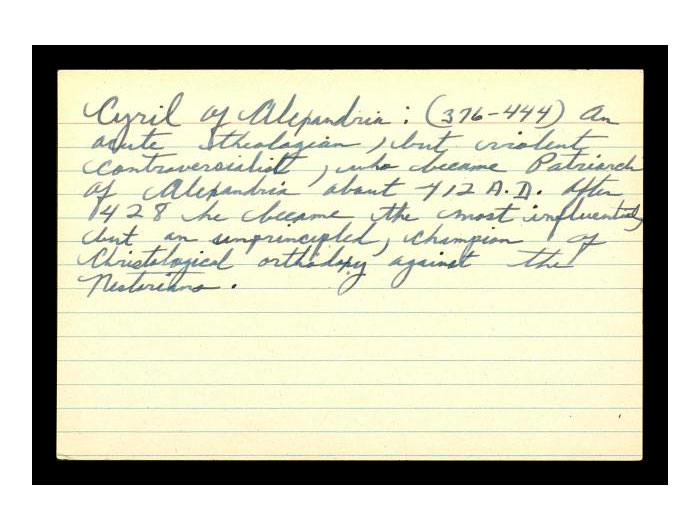 Cyril of Alexandria : (376-444) An
acute theologian, but violent
controversialist, who became Patriarch
of Alexandria about 412 A.D. After
428 he became the most influential,
but an unprincipled, champion of
Christological orthodoxy against the
Nestorians.